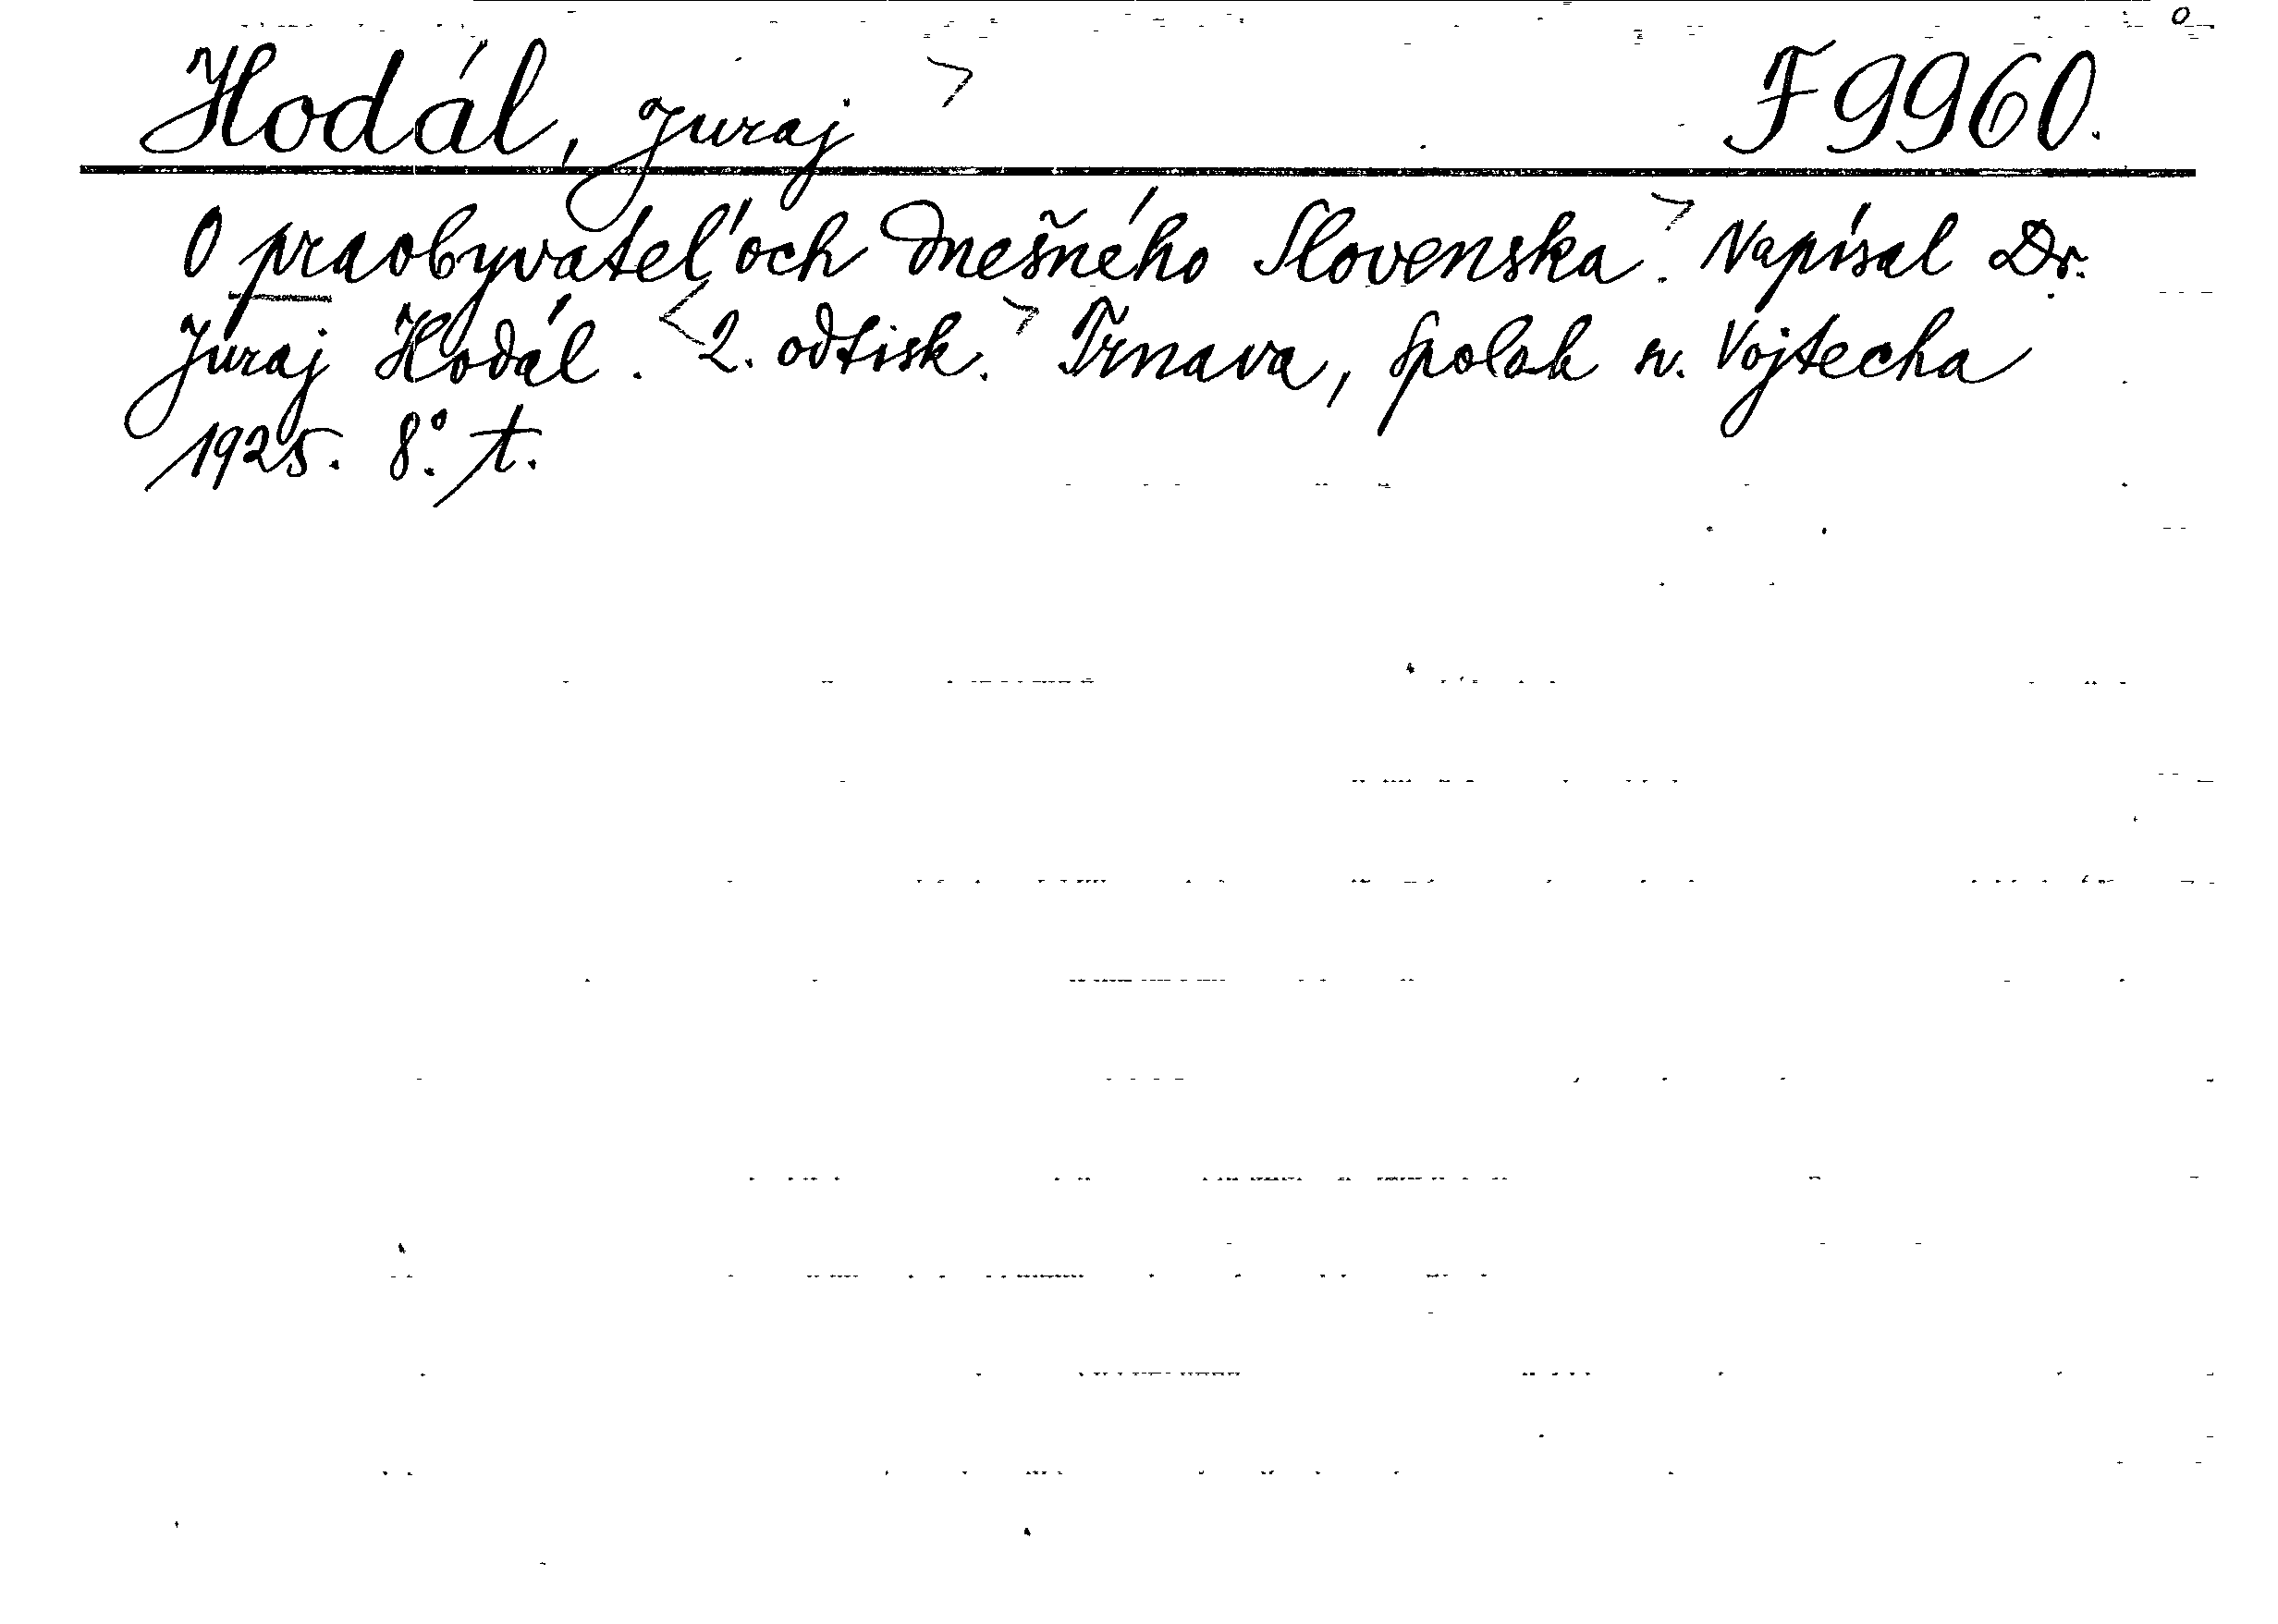 Hodál, Juraj F 9960.
O praobyvateľoch dnešného Slovenska. Napísal Dr.
Juraj Hodál. 2. odtisk. Trnava, Spolok sv. Vojtecha
1925. 8°. t.